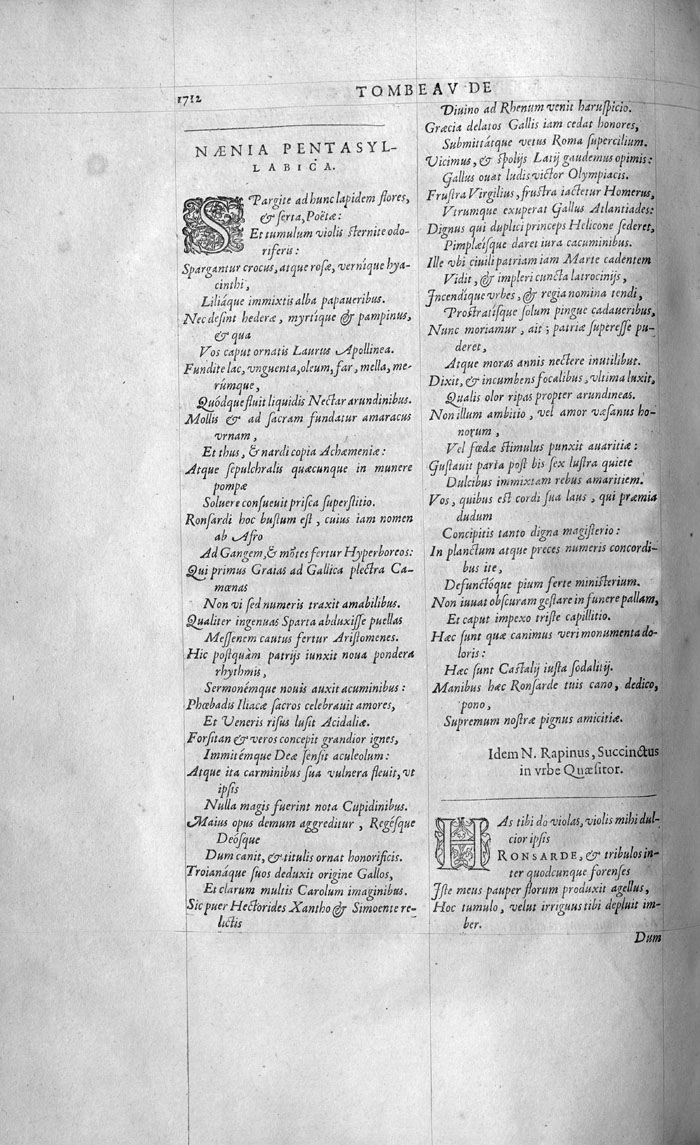 1712
TOMBEAV DE
NÆNIA PENTASYL-
LABICA.
SPargite ad hunc lapidem flores,
& serta, Poëtæ:
Et tumulum violis sternite odo-
riferis:
Spargantur crocus, atque rosæ, vernique hya-
cinthi,
Liliáque immixtis alba papaueribus.
Nec desint hederæ, myrtique & pampinus,
& qua
Vos caput ornatis Laurus Apollinea.
Fundite lac, vnguenta, oleum, far, mella, me-
rúmque,
Quódque fluit liquidis Nectar arundinibus.
Mollis & ad sacram fundatur amaracus
vrnam,
Et thus, & nardi copia Achæmeniæ:
Atque sepulchralis quæcunque in munere
pompæ
Soluere consueuit prisca superstitio.
Ronsardi hoc bustum est, cuius iam nomen
ab Afro
Ad Gangem, & mōtes fertur Hyperboreos:
Qui primus Graias ad Gallica plectra Ca-
mœnas
Non vi sed numeris traxit amabilibus.
Qualiter ingenuas Sparta abduxisse puellas
Messenem cautus fertur Aristomenes.
Hic postquàm patrijs iunxit noua pondera
rhythmis,
Sermonémque nouis auxit acuminibus:
Phœbadis Iliacæ sacros celebrauit amores,
Et Veneris risus lusit Acidaliæ.
Forsitan & veros concepit grandior ignes,
Immitémque Deæ sensit aculeolum:
Atque ita carminibus sua vulnera fleuit, vt
ipsis
Nulla magis fuerint nota Cupidinibus.
Maius opus demum aggreditur, Regésque
Deósque
Dum canit, & titulis ornat honorificis.
Troianáque suos deduxit origine Gallos,
Et clarum multis Carolum imaginibus.
Sic puer Hectorides Xantho & Simoente re-
lictis
Diuino ad Rhenum venit haruspicio.
Græcia delatos Gallis iam cedat honores,
Submittátque vetus Roma supercilium.
Vicimus, & spolijs Latij gaudemus opimis:
Gallus ouat ludis victor Olympiacis.
Frustra Virgilius, frustra iactetur Homerus,
Virumque exuperat Gallus Atlantiades:
Dignus qui duplici princeps Helicone sederet,
Pimplæisque daret iura cacuminibus.
Ille vbi ciuili patriam iam Marte cadentem
Vidit, & impleri cuncta latrocinijs,
Incendique vrbes, & regia nomina tendi,
Prostratisque solum pingue cadaueribus,
Nunc moriamur, ait; patriæ superesse pu-
deret,
Atque moras annis nectere inutilibus.
Dixit, & incumbens focalibus, vltima luxit,
Qualis olor ripas propter arundineas.
Non illum ambitio, vel amor væsanus ho-
norum,
Vel fœdæ stimulus punxit auaritiæ:
Gustauit paria post bis sex lustra quiete
Dulcibus immixtam rebus amaritiem.
Vos, quibus est cordi sua laus, qui præmia
dudum
Concipitis tanto digna magisterio:
In planctum atque preces numeris concordi-
bus ite,
Defunctóque pium ferte ministerium.
Non iuuat obscuram gestare in funere pallam,
Et caput impexo triste capillitio.
Hæc sunt quæ canimus veri monumenta do-
loris:
Hæc sunt Castalij iusta sodalitij.
Manibus hæc Ronsarde tuis cano, dedico,
pono,
Supremum nostræ pignus amicitiæ.
Idem N. Rapinus, Succinctus
in vrbe Quæsitor.
HAs tibi do violas, violis mihi dul-
cior ipsis
RONSARDE, & tribulos in-
ter quodcunque forenses
Iste meus pauper florum produxit agellus,
Hoc tumulo, velut irriguus tibi depluit im-
ber.
Dum